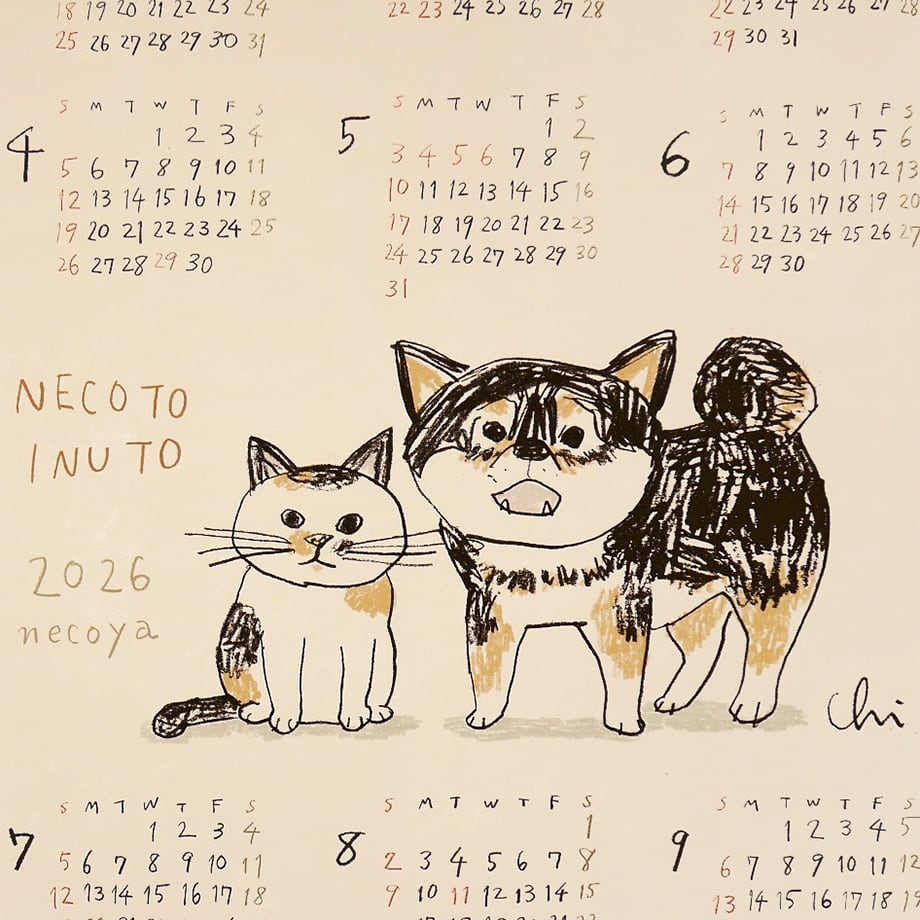 18 19 20 21 22 23 24
25 26 27 28 29 30 31
22 23 24 25 26 27 28
22 23 24 25 26 27 28
29 30 31
4
S M T W T F S
1 2 3 4
5 6 7 8 9 10 11
12 13 14 15 16 17 18
19 20 21 22 23 24 25
26 27 28 29 30
5
S M T W T F S
1 2
3 4 5 6 7 8 9
10 11 12 13 14 15 16
17 18 19 20 21 22 23
24 25 26 27 28 29 30
31
6
S M T W T F S
1 2 3 4 5 6
7 8 9 10 11 12 13
14 15 16 17 18 19 20
21 22 23 24 25 26 27
28 29 30
NECO TO
INU TO
2026
necoya
Chi
7
S M T W T F S
1 2 3 4
5 6 7 8 9 10 11
12 13 14 15 16 17 18
8
S M T W T F S
1
2 3 4 5 6 7 8
9 10 11 12 13 14 15
9
S M T W T F S
1 2 3 4 5
6 7 8 9 10 11 12
13 14 15 16 17 18 19